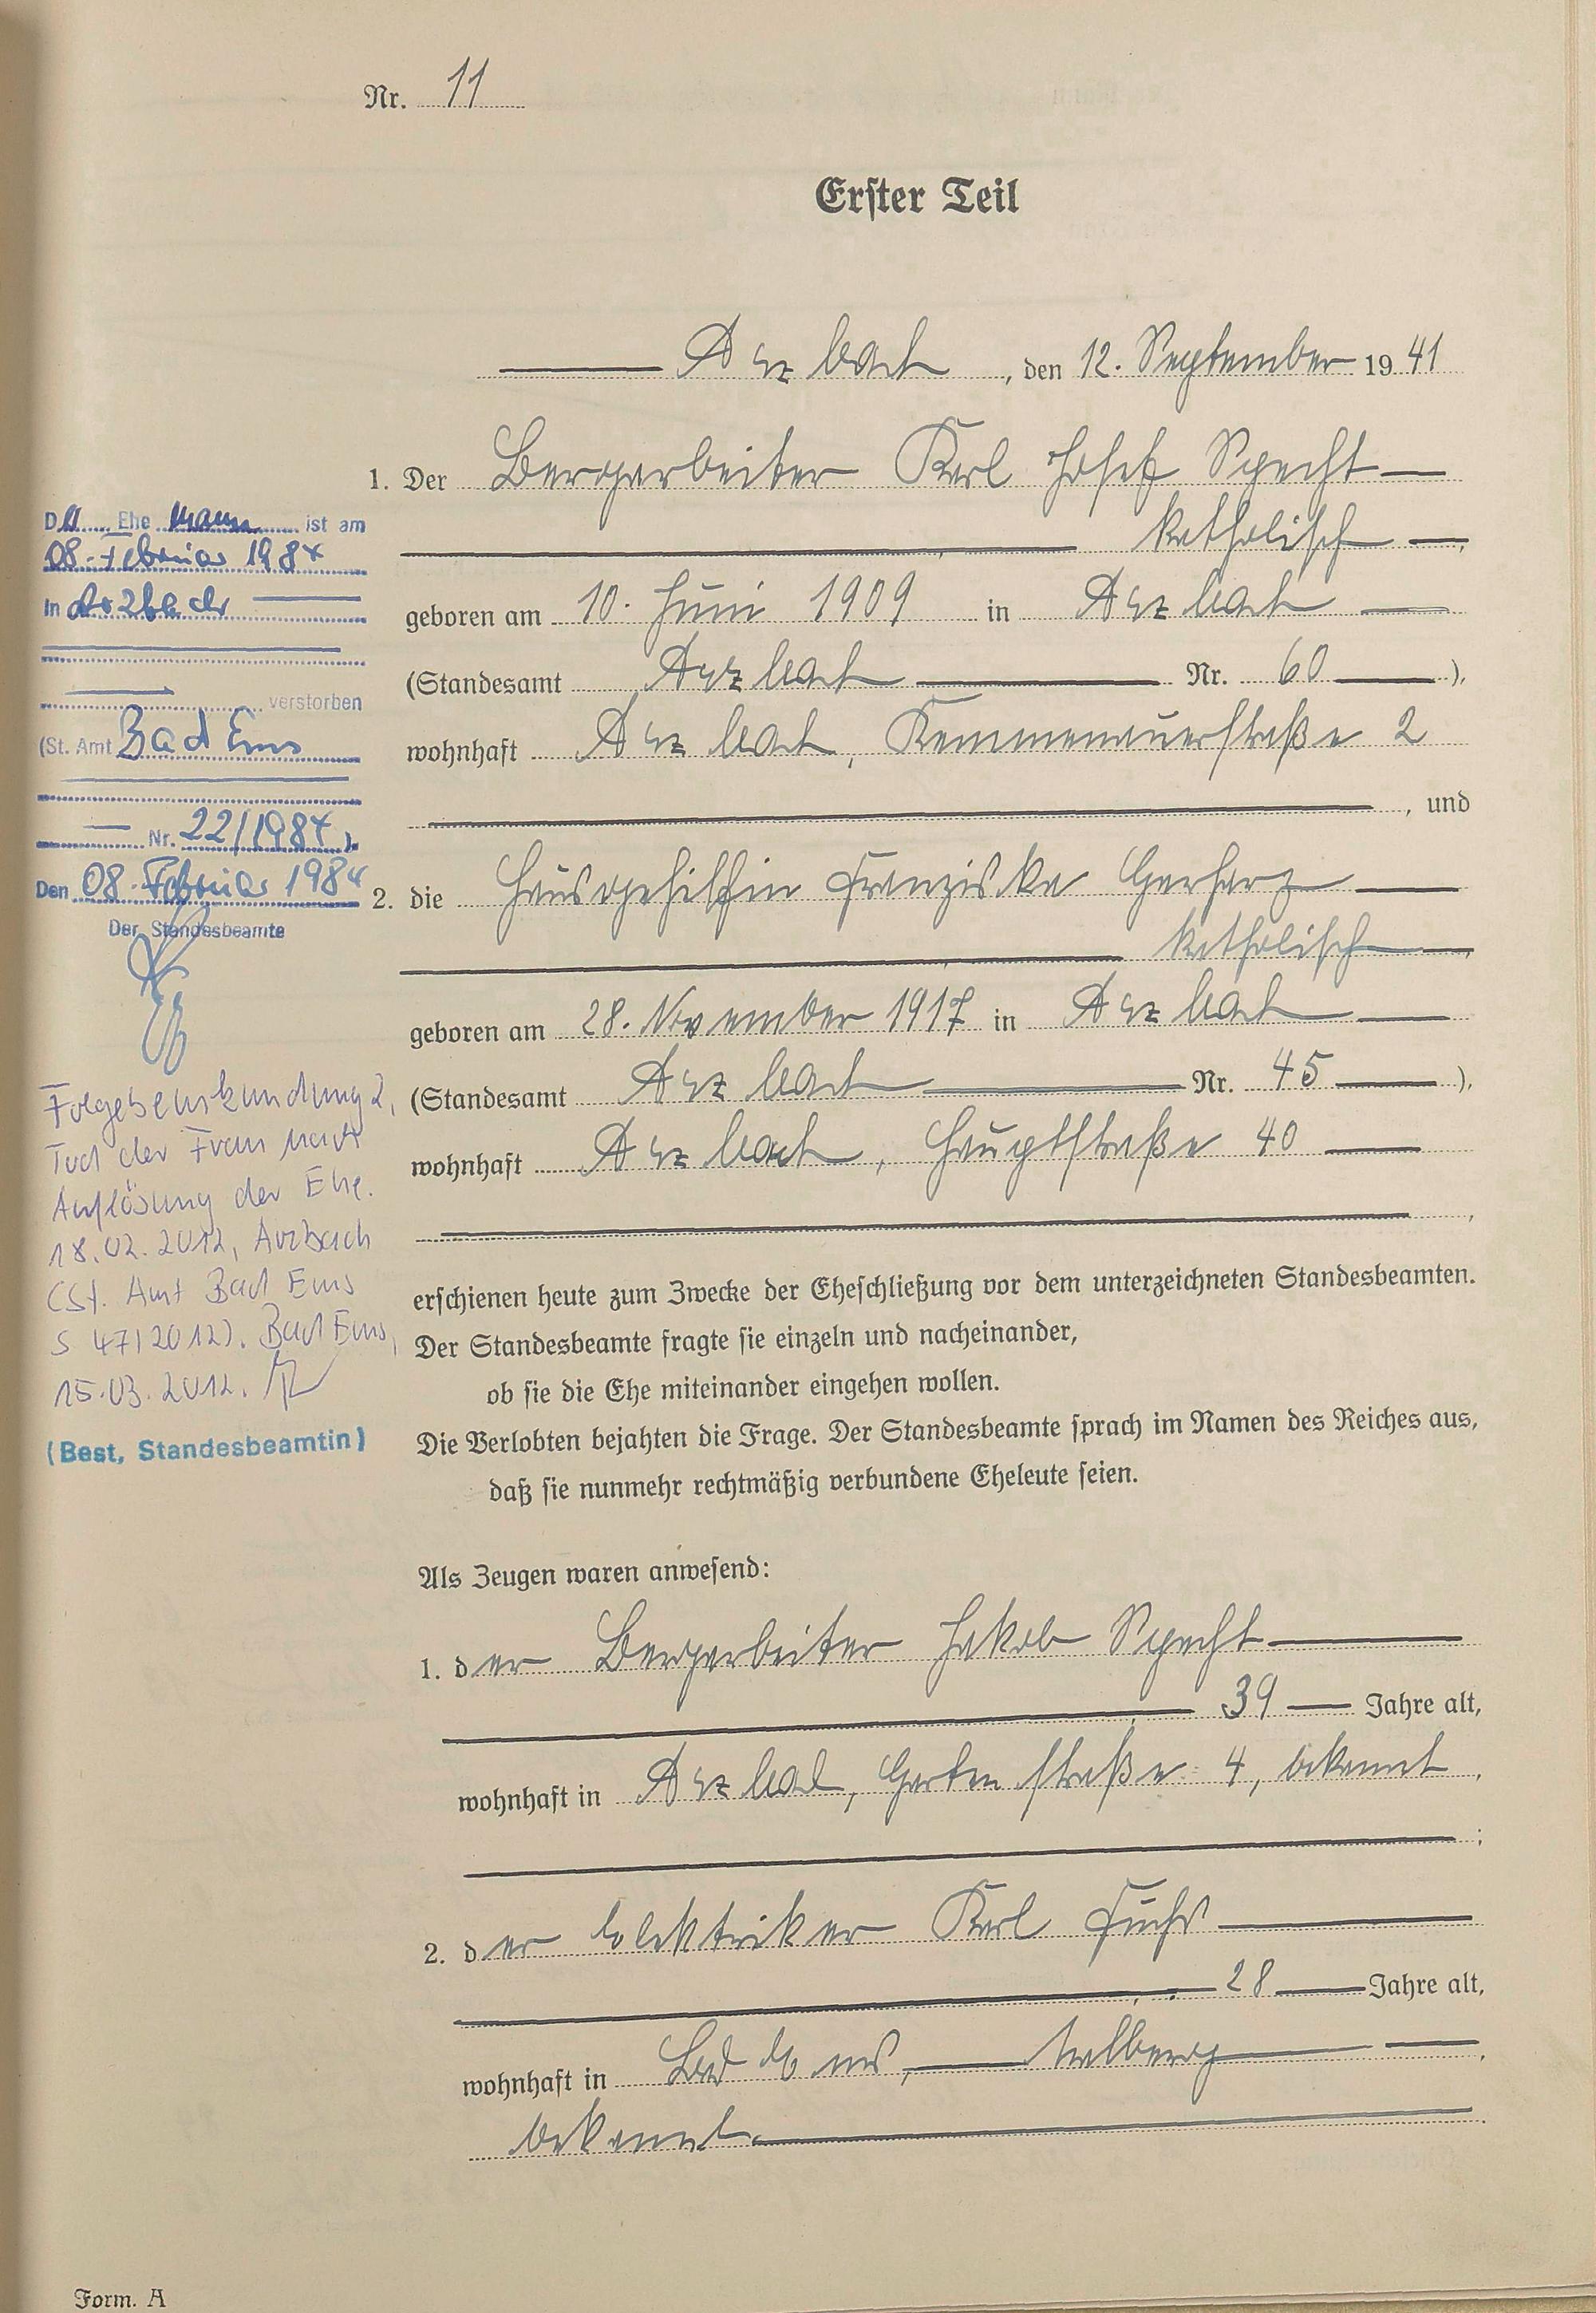 Nr. 11
Erster Teil
Arzbach, den 12. September 1941
1. Der Bergarbeiter Karl Josef Specht
katholisch
geboren am 10. Juni 1909 in Arzbach
(Standesamt Arzbach Nr. 60),
wohnhaft Arzbach, Kemmenauerstraße 2
, und
2. die Hausgehilfin Franziska Gerharz
katholisch,
geboren am 28. November 1917 in Arzbach
(Standesamt Arzbach Nr. 45),
wohnhaft Arzbach, Hauptstraße 40
,
erschienen heute zum Zwecke der Eheschließung vor dem unterzeichneten Standesbeamten.
Der Standesbeamte fragte sie einzeln und nacheinander,
ob sie die Ehe miteinander eingehen wollen.
Die Verlobten bejahten die Frage. Der Standesbeamte sprach im Namen des Reiches aus,
daß sie nunmehr rechtmäßig verbundene Eheleute seien.
Als Zeugen waren anwesend:
1. der Bergarbeiter Jakob Specht
39 Jahre alt,
wohnhaft in Arzbach, Gartenstraße 4, bekannt,
;
2. der Elektriker Karl Fuchs
28 Jahre alt,
wohnhaft in Bad Ems,
bekannt.
Form. A
Der Ehemann ist am
08. Februar 1984
in Arzbach
verstorben
(St. Amt Bad Ems
Nr. 22/1984).
Den 08. Februar 1984
Der Standesbeamte
Folgebeurkundung 2,
Tod der Frau nach
Auflösung der Ehe.
18.02.2012, Arzbach
(St. Amt Bad Ems
S 47/2012). Bad Ems,
15.03.2012.
(Best, Standesbeamtin)